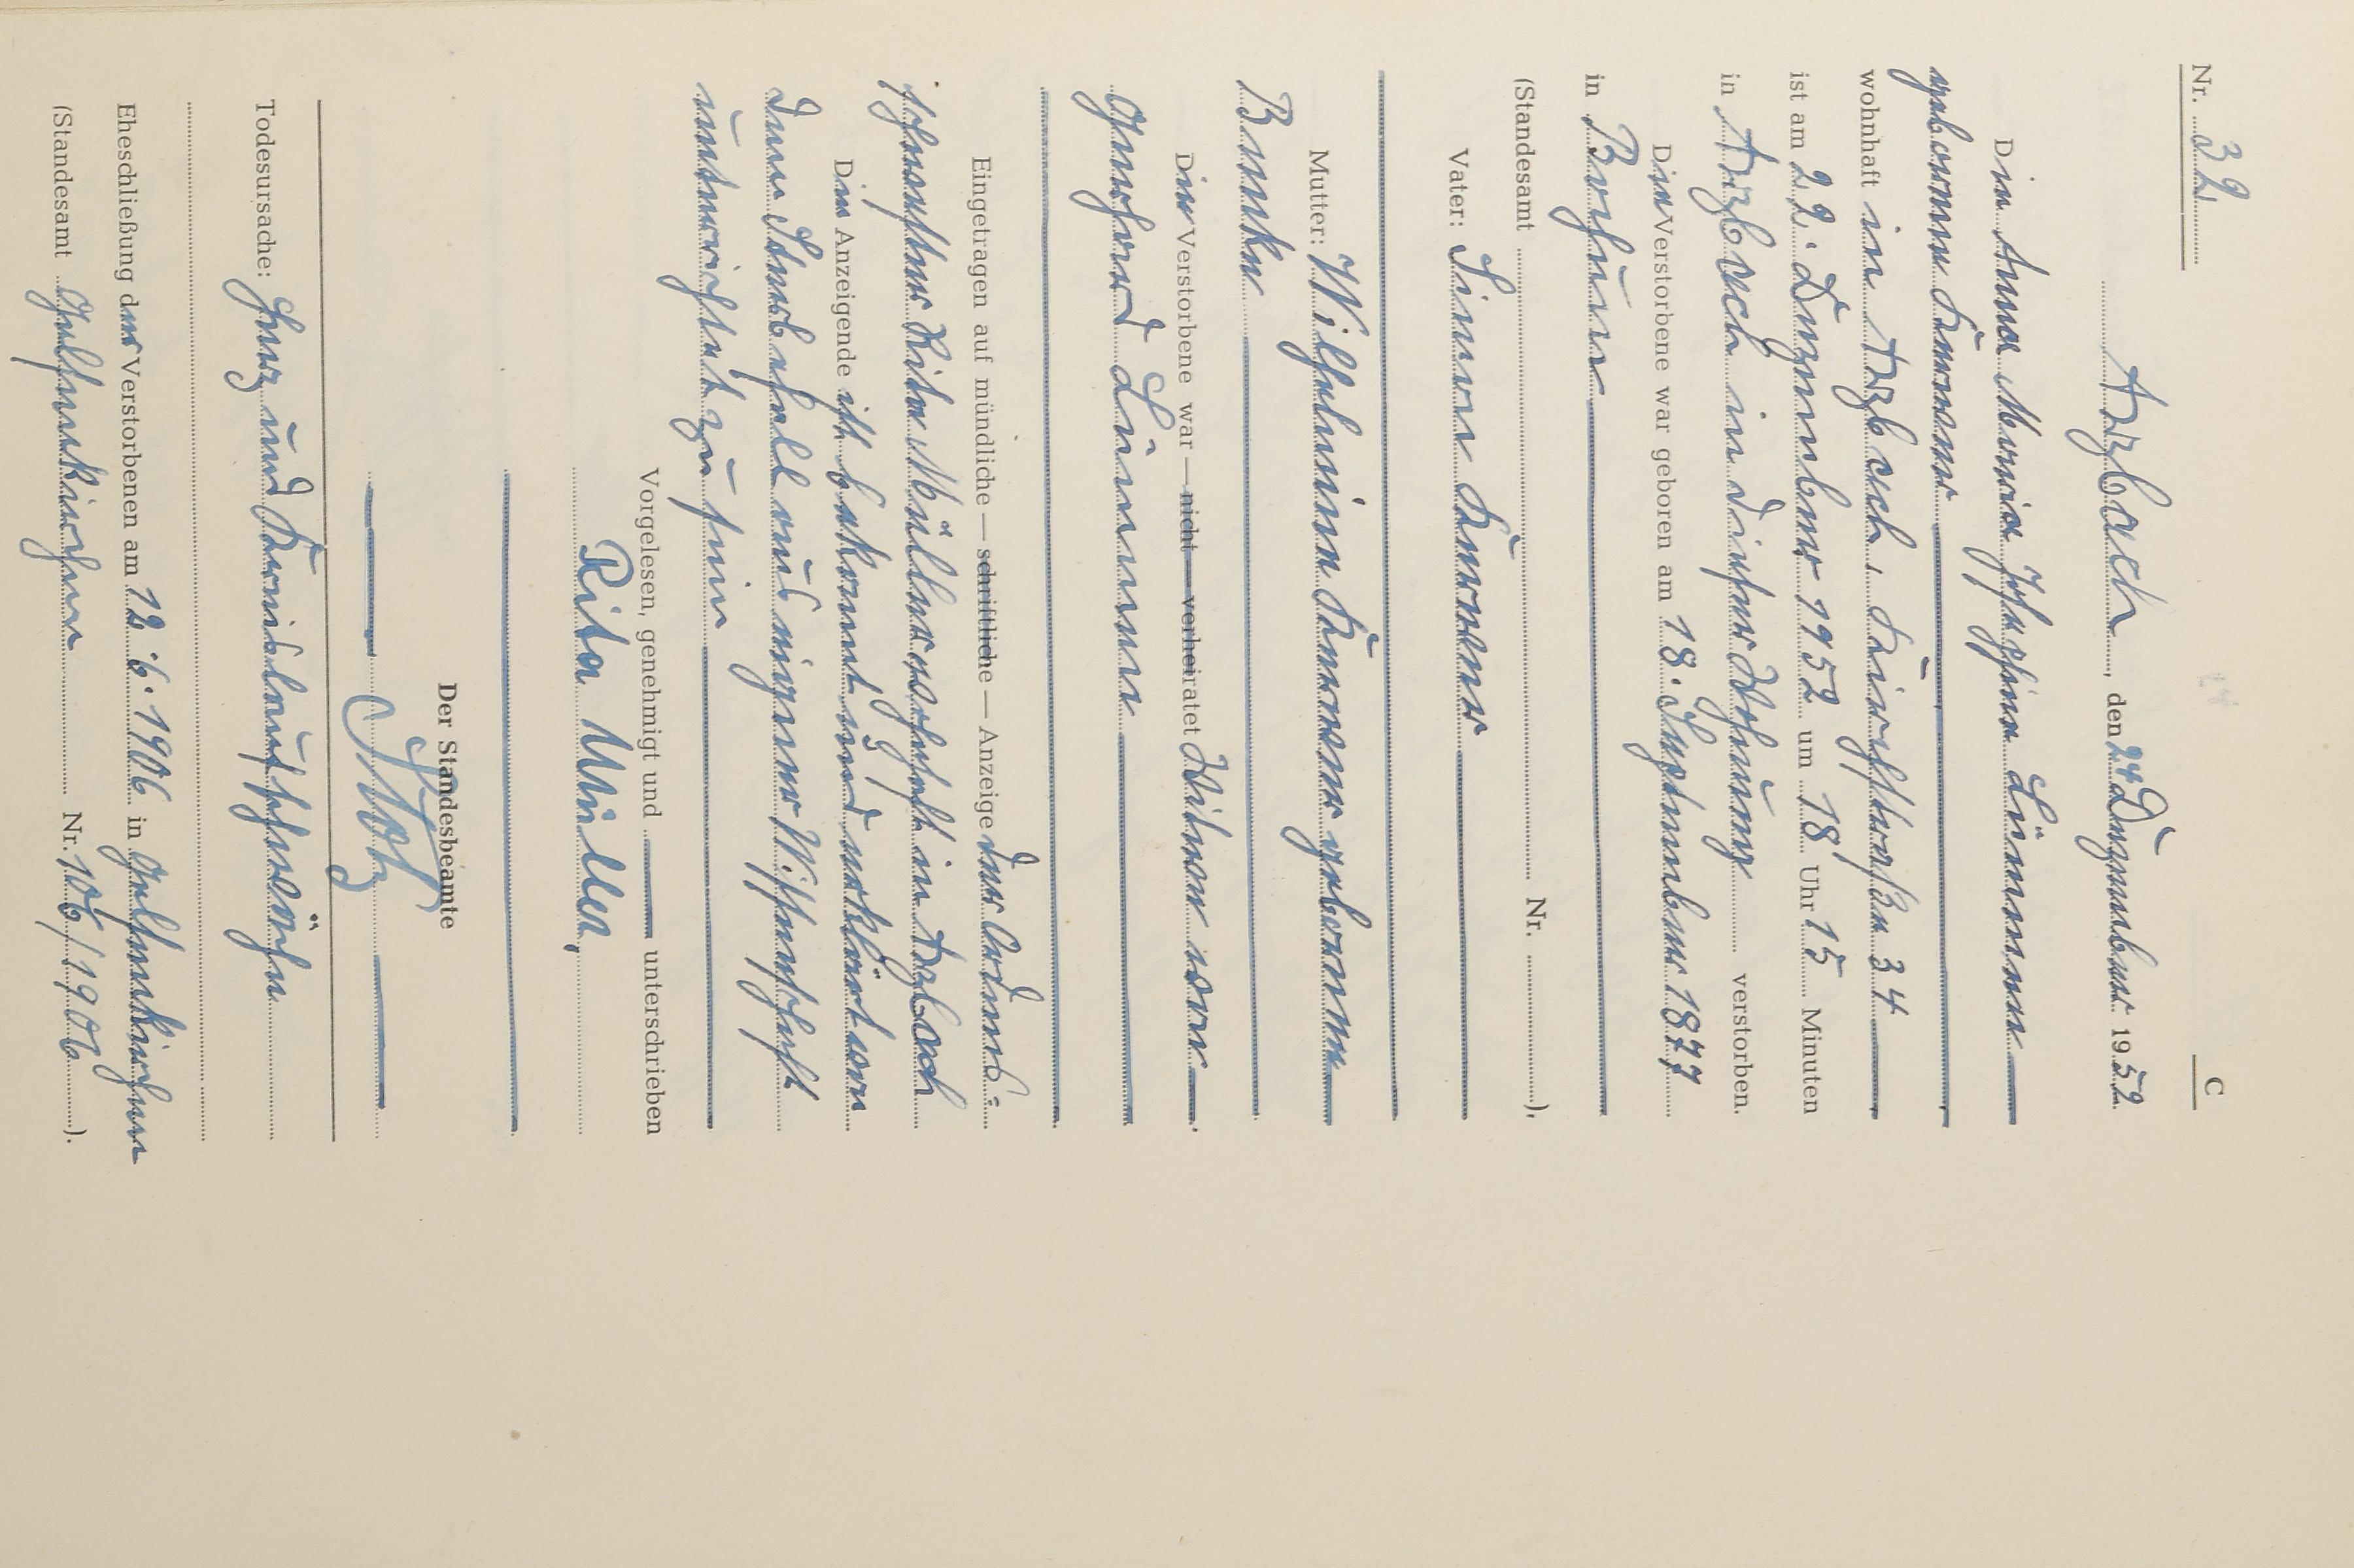 Nr. 32 C
Arzbach, den 24. Dezember 1952
Die Anna Maria Josephine Simmer
geborene
wohnhaft in Arzbach, Kirchstraße 34
ist am 22. Dezember 1952 um 18 Uhr 15 Minuten
in Arzbach in dieser Wohnung verstorben.
Die Verstorbene war geboren am 18. September 1877
in
(Standesamt Nr. ).
Vater: Simon
Mutter: Wilhelmine geborene
Die Verstorbene war — nicht — verheiratet Witwe von
Gerhard
Eingetragen auf mündliche — schriftliche — Anzeige der Ordens=
schwester Rita Müller wohnhaft in Arzbach
Die Anzeigende ist bekannt und erklärt von
dem Sterbefall aus eigener Wissenschaft
unterrichtet zu sein
Vorgelesen, genehmigt und unterschrieben
Rita Müller,
Der Standesbeamte
Todesursache: Herz und Kreislaufschwäche
Eheschließung der Verstorbenen am 12.6.1906 in Gelsenkirchen
(Standesamt Gelsenkirchen Nr. 106/1906 ).